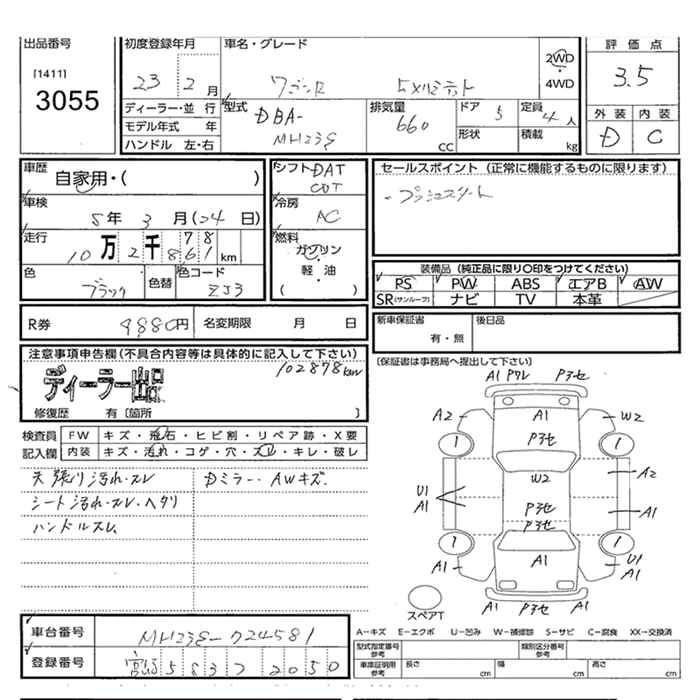 出品番号
[1411]
3055
初度登録年月
23 2 月
車名・グレード
ワゴンR
リミテット
2WD
4WD
評価点
3.5
外装 内装
D C
ディーラー・並行
モデル年式 年
ハンドル 左・右
型式
DBA-
MH23S
排気量
660
CC
ドア
5
形状
定員
4人
積載
kg
車歴
自家用・( )
車検
5年 3月 (24日)
走行
10万2千861km
78
色
ブラック
色替
色コード
ZJ3
シフト DAT
CVT
冷房
AC
燃料
ガソリン
軽・油
( )
セールスポイント (正常に機能するものに限ります)
・プッシュスタート
装備品 (純正品に限り〇印をつけてください)
PS PW ABS エアB AW
SR(サンルーフ) ナビ TV 本革
R券
9880円
名変期限 月 日
新車保証書
有・無
後日品
注意事項申告欄(不具合内容等は具体的に記入して下さい)
102878km
ディーラー出品
修復歴 有〔箇所 〕
〔保証書は事務局へ提出して下さい〕
検査員
記入欄
FW キズ・飛石・ヒビ割・リペア跡・X要
内装 キズ・汚れ・コゲ・穴・スレ・キレ・破レ
天張り汚れ・スレ
シート汚れ・スレ・ヘタリ
ハンドルスレ
Dミラー・AWキズ
A1 Pワレ Pヨセ
A2 A1 W2
Pヨセ
1 1
W2 A2
U1
A1
Pヨセ A1
Pヨセ
1 1
A1 A1 U1
A1
A1 Pヨセ A1
スペアT
A-キズ E-エクボ U-凹み W-補修跡 S-サビ C-腐食 XX-交換済
車台番号
MH23S-724581
登録番号
583 2050
型式指定番号
参考
類別区分番号
参考
車庫証明用
参考
長さ cm
幅 cm
高さ cm